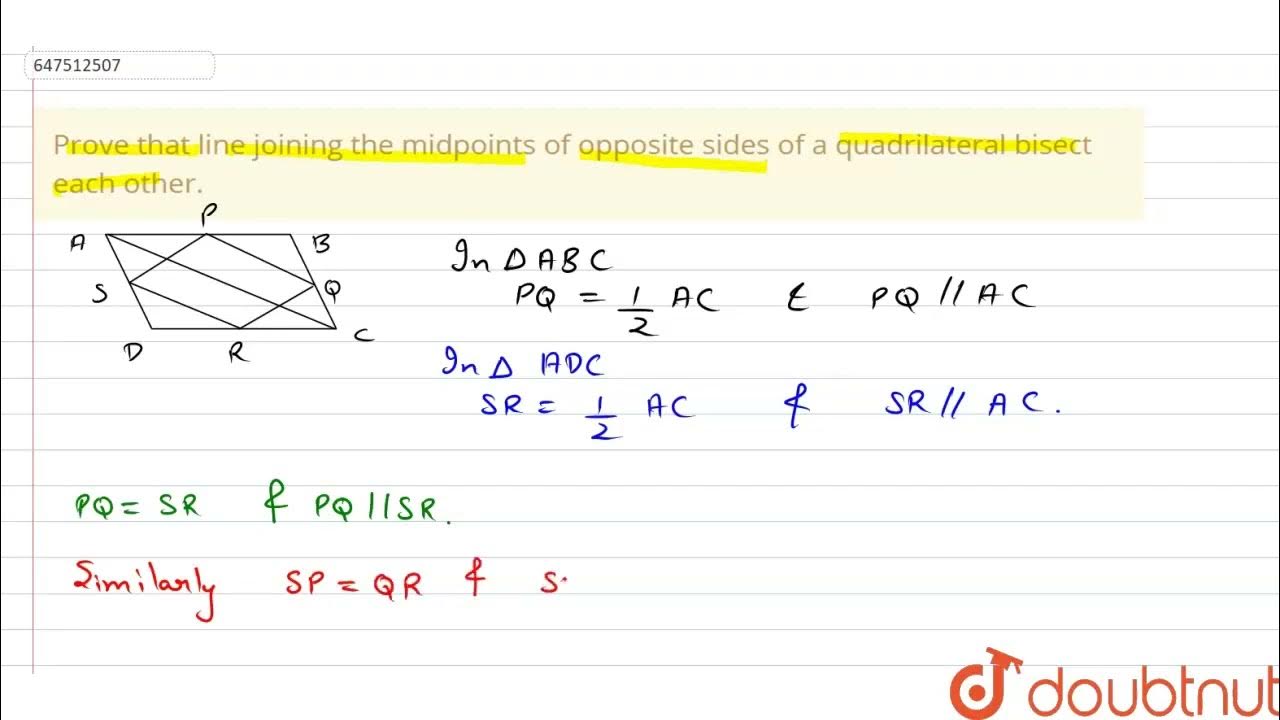 647512507
Prove that line joining the midpoints of opposite sides of a quadrilateral bisect
each other.
P
A B
S Q
D R C
In Δ ABC
PQ = 1/2 AC & PQ // AC
In Δ ADC
SR = 1/2 AC & SR // AC.
PQ = SR & PQ || SR.
Similarly SP = QR & S
doubtnut